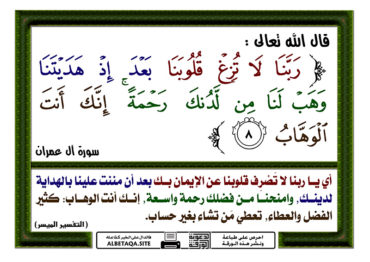 قال الله تعالى :
﴿ رَبَّنَا لَا تُزِغْ قُلُوبَنَا بَعْدَ إِذْ هَدَيْتَنَا
وَهَبْ لَنَا مِن لَّدُنكَ رَحْمَةً ۚ إِنَّكَ أَنتَ
الْوَهَّابُ ٨ ﴾
سورة آل عمران
أي يـا ربنا لا تَصْرِف قلوبنا عن الإيمان بـك بعد أن مننت علينا بالهداية
لدينـك, وامنحنـا مـن فضلك رحمة واسـعة, إنـك أنت الوهـاب: كثير
الفضل والعطاء, تعطي مَن تشاء بغير حساب.
(التفسير الميسر)
احرص على طباعة
ونشر هذه الورقة
دعوية
الورقة
فالدال على الخير كفاعله
ALBETAQA.SITE